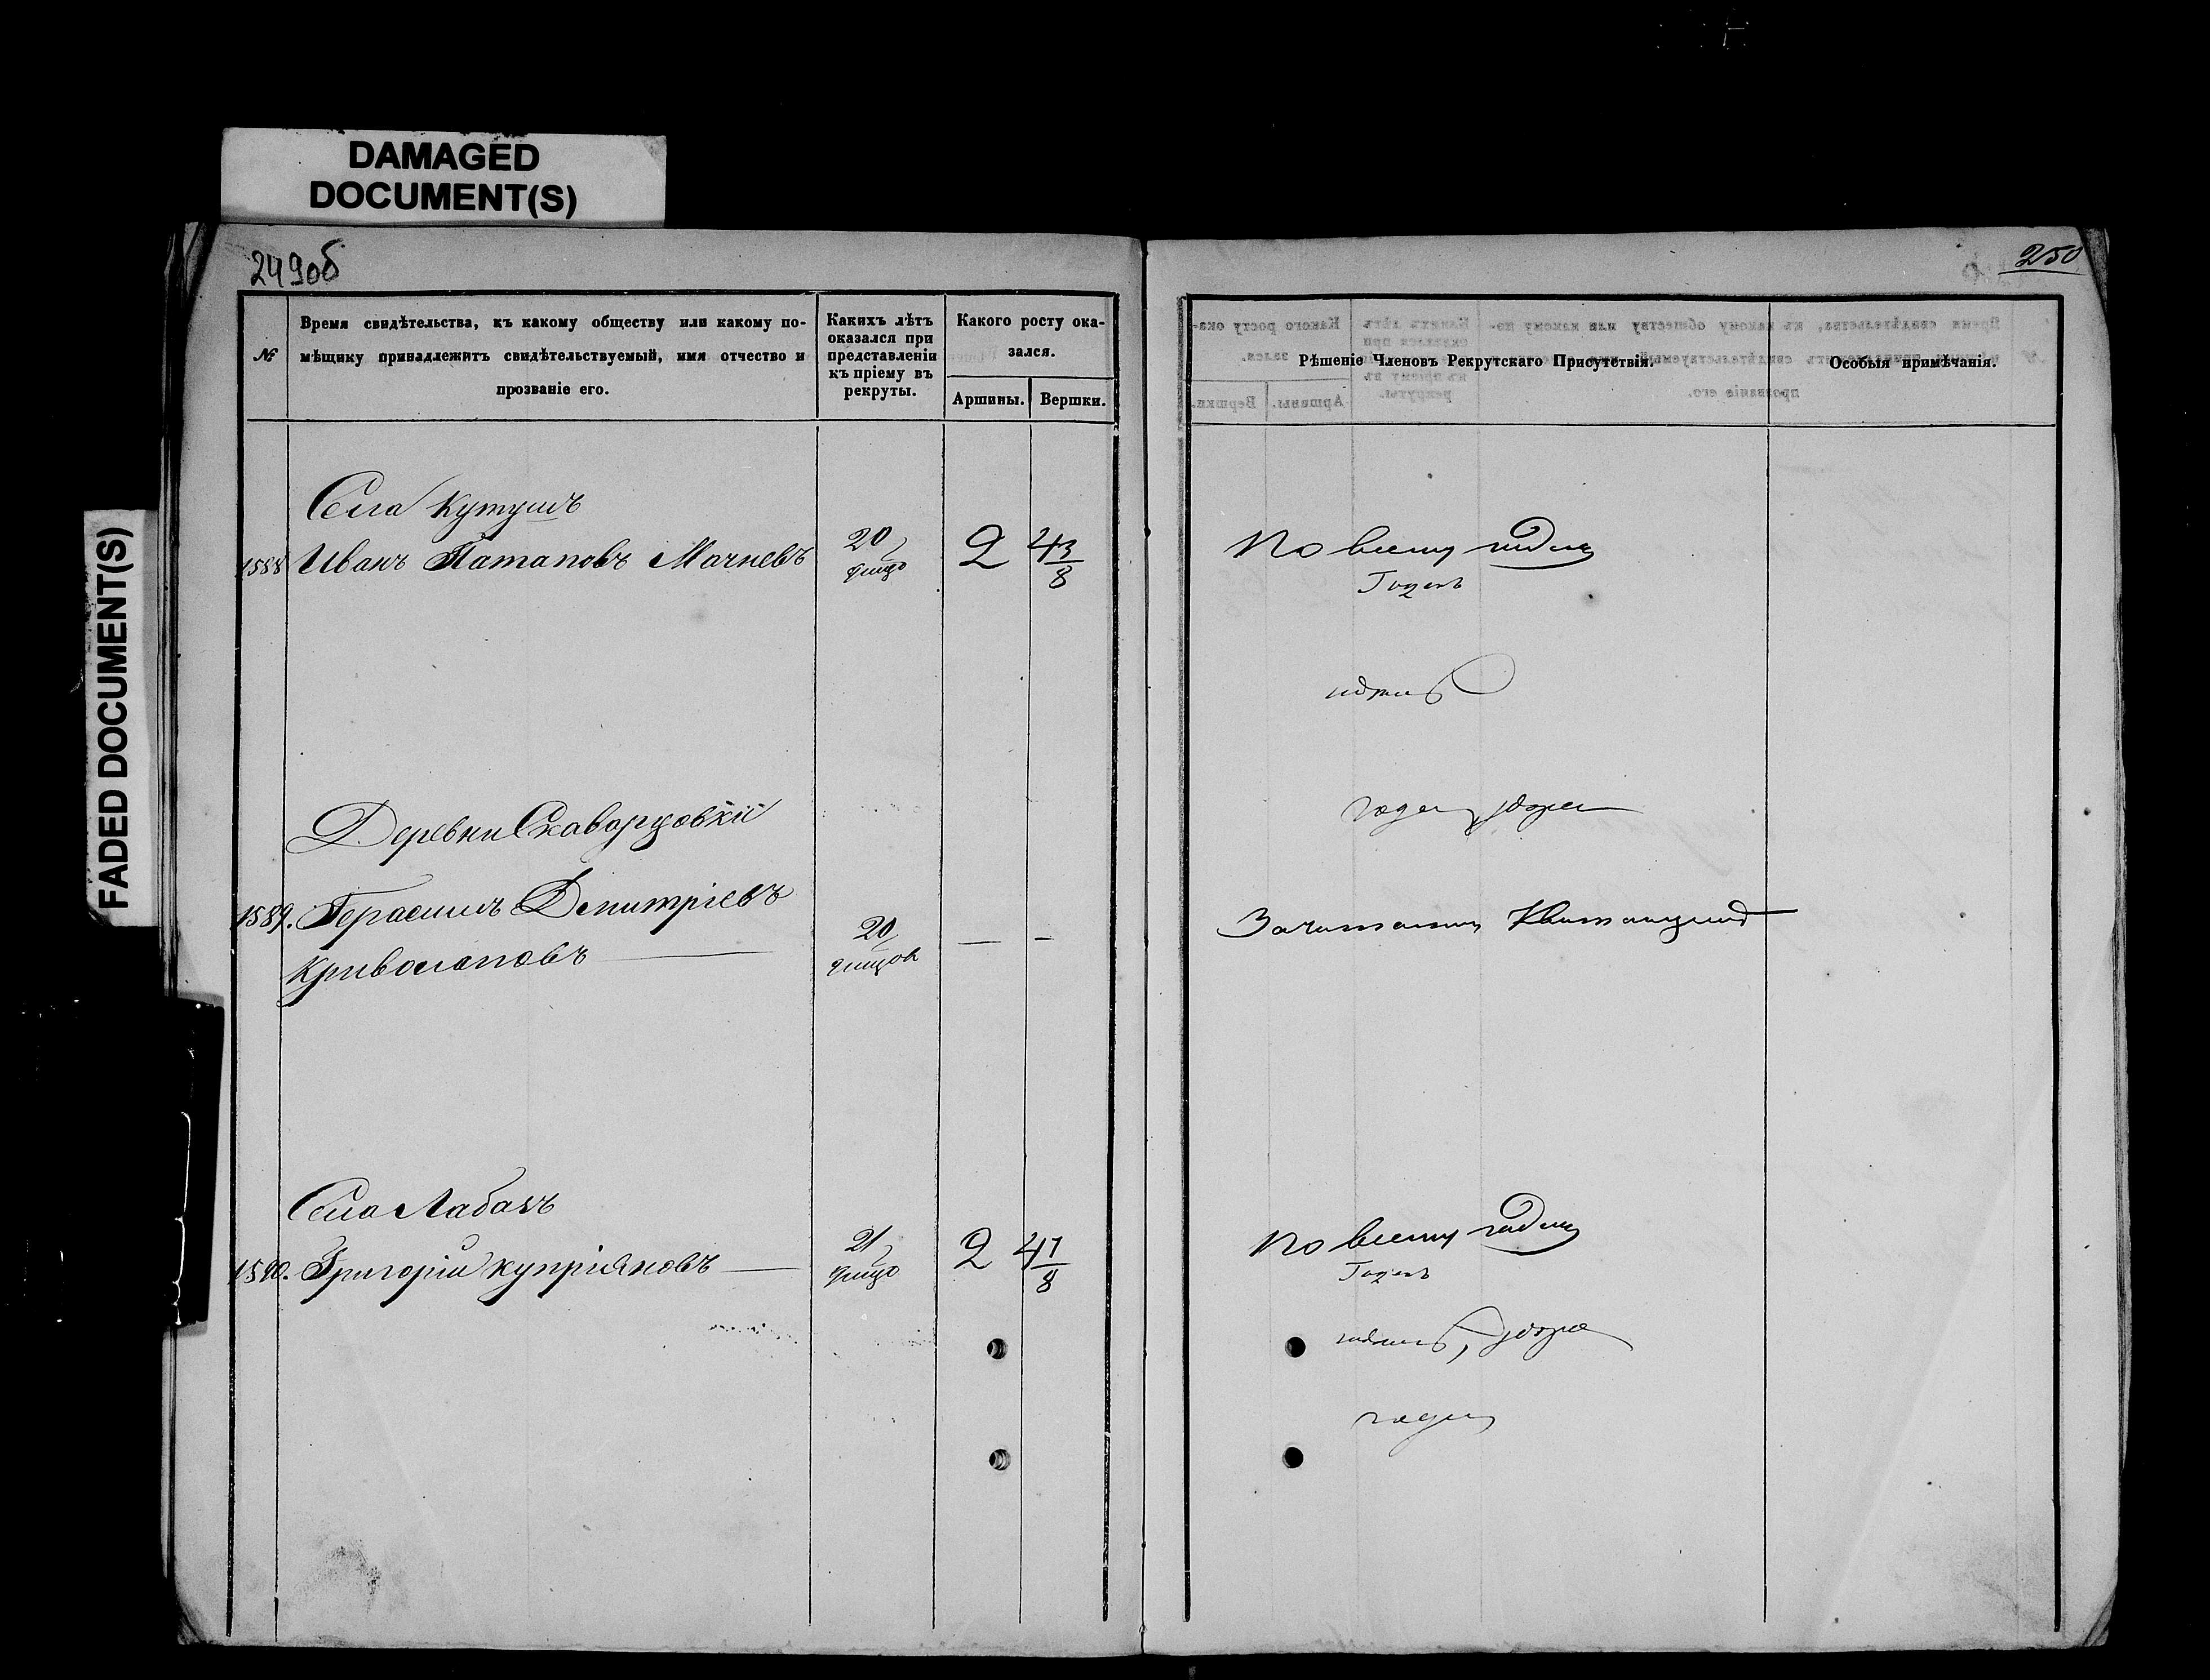 DAMAGED
DOCUMENT(S)
FADED DOCUMENT(S)
249об
№
Время свидѣтельства, къ какому обществу или какому по-
мѣщику принадлежитъ свидѣтельствуемый, имя отчество и
прозваніе его.
Какихъ лѣтъ
оказался при
представленіи
къ пріему въ
рекруты.
Какого росту ока-
зался.
Аршины.
Вершки.
Села Кутушъ
1588 Иванъ Патаповъ Мачневъ
20
2 4 3/8
Деревни
1589. Герасимъ Дмитріевъ
20
— -
Кривошаповъ
Села Лабазъ
1590. Григорій Купріяновъ
21
2 4 1/8
250
Рѣшеніе Членовъ Рекрутскаго Присутствія.
Особыя примѣчанія.
По всему годенъ
Годенъ
годенъ
Квитанціею
По всему годенъ
Годенъ
годенъ